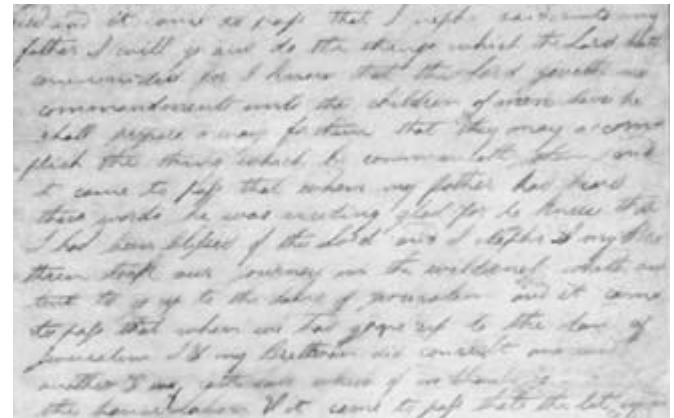 and it came to pass that I nephi said unto my
father I will go and do the things which the Lord hath
commanded for I know that the Lord giveth no
commandments unto the children of men save he
shall prepare a way for them that they may accom
plish the thing which he commandeth them and
it came to pass that when my father had heard
these words he was exceding glad for he knew that
I had been blessed of the Lord and I nephi & my bre
thren took our journey in the wilderness with our
tent to go up to the land of Jerusalem and it came
to pass that when we had gone up to the land of
Jerusalem I & my Brethren did consult one with
another & we cast lots which of us should go
the house Laban & it came to pass that the lot